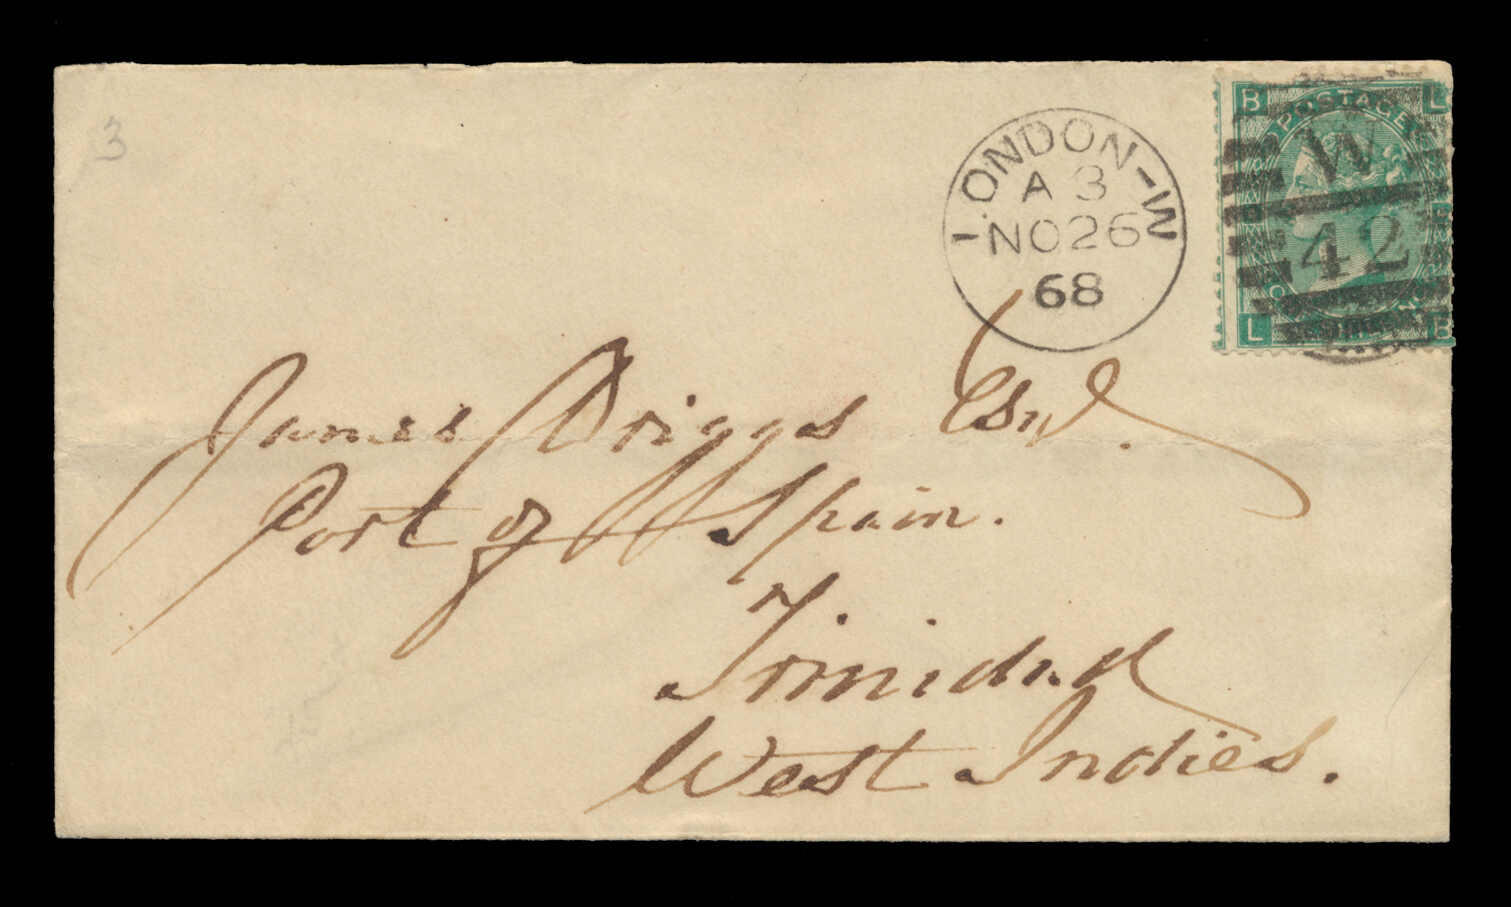 3
LONDON-W
A 3
NO 26
68
B L
POSTAGE
W
42
L B
James Briggs Esqr.
Port of Spain.
Trinidad
West Indies.